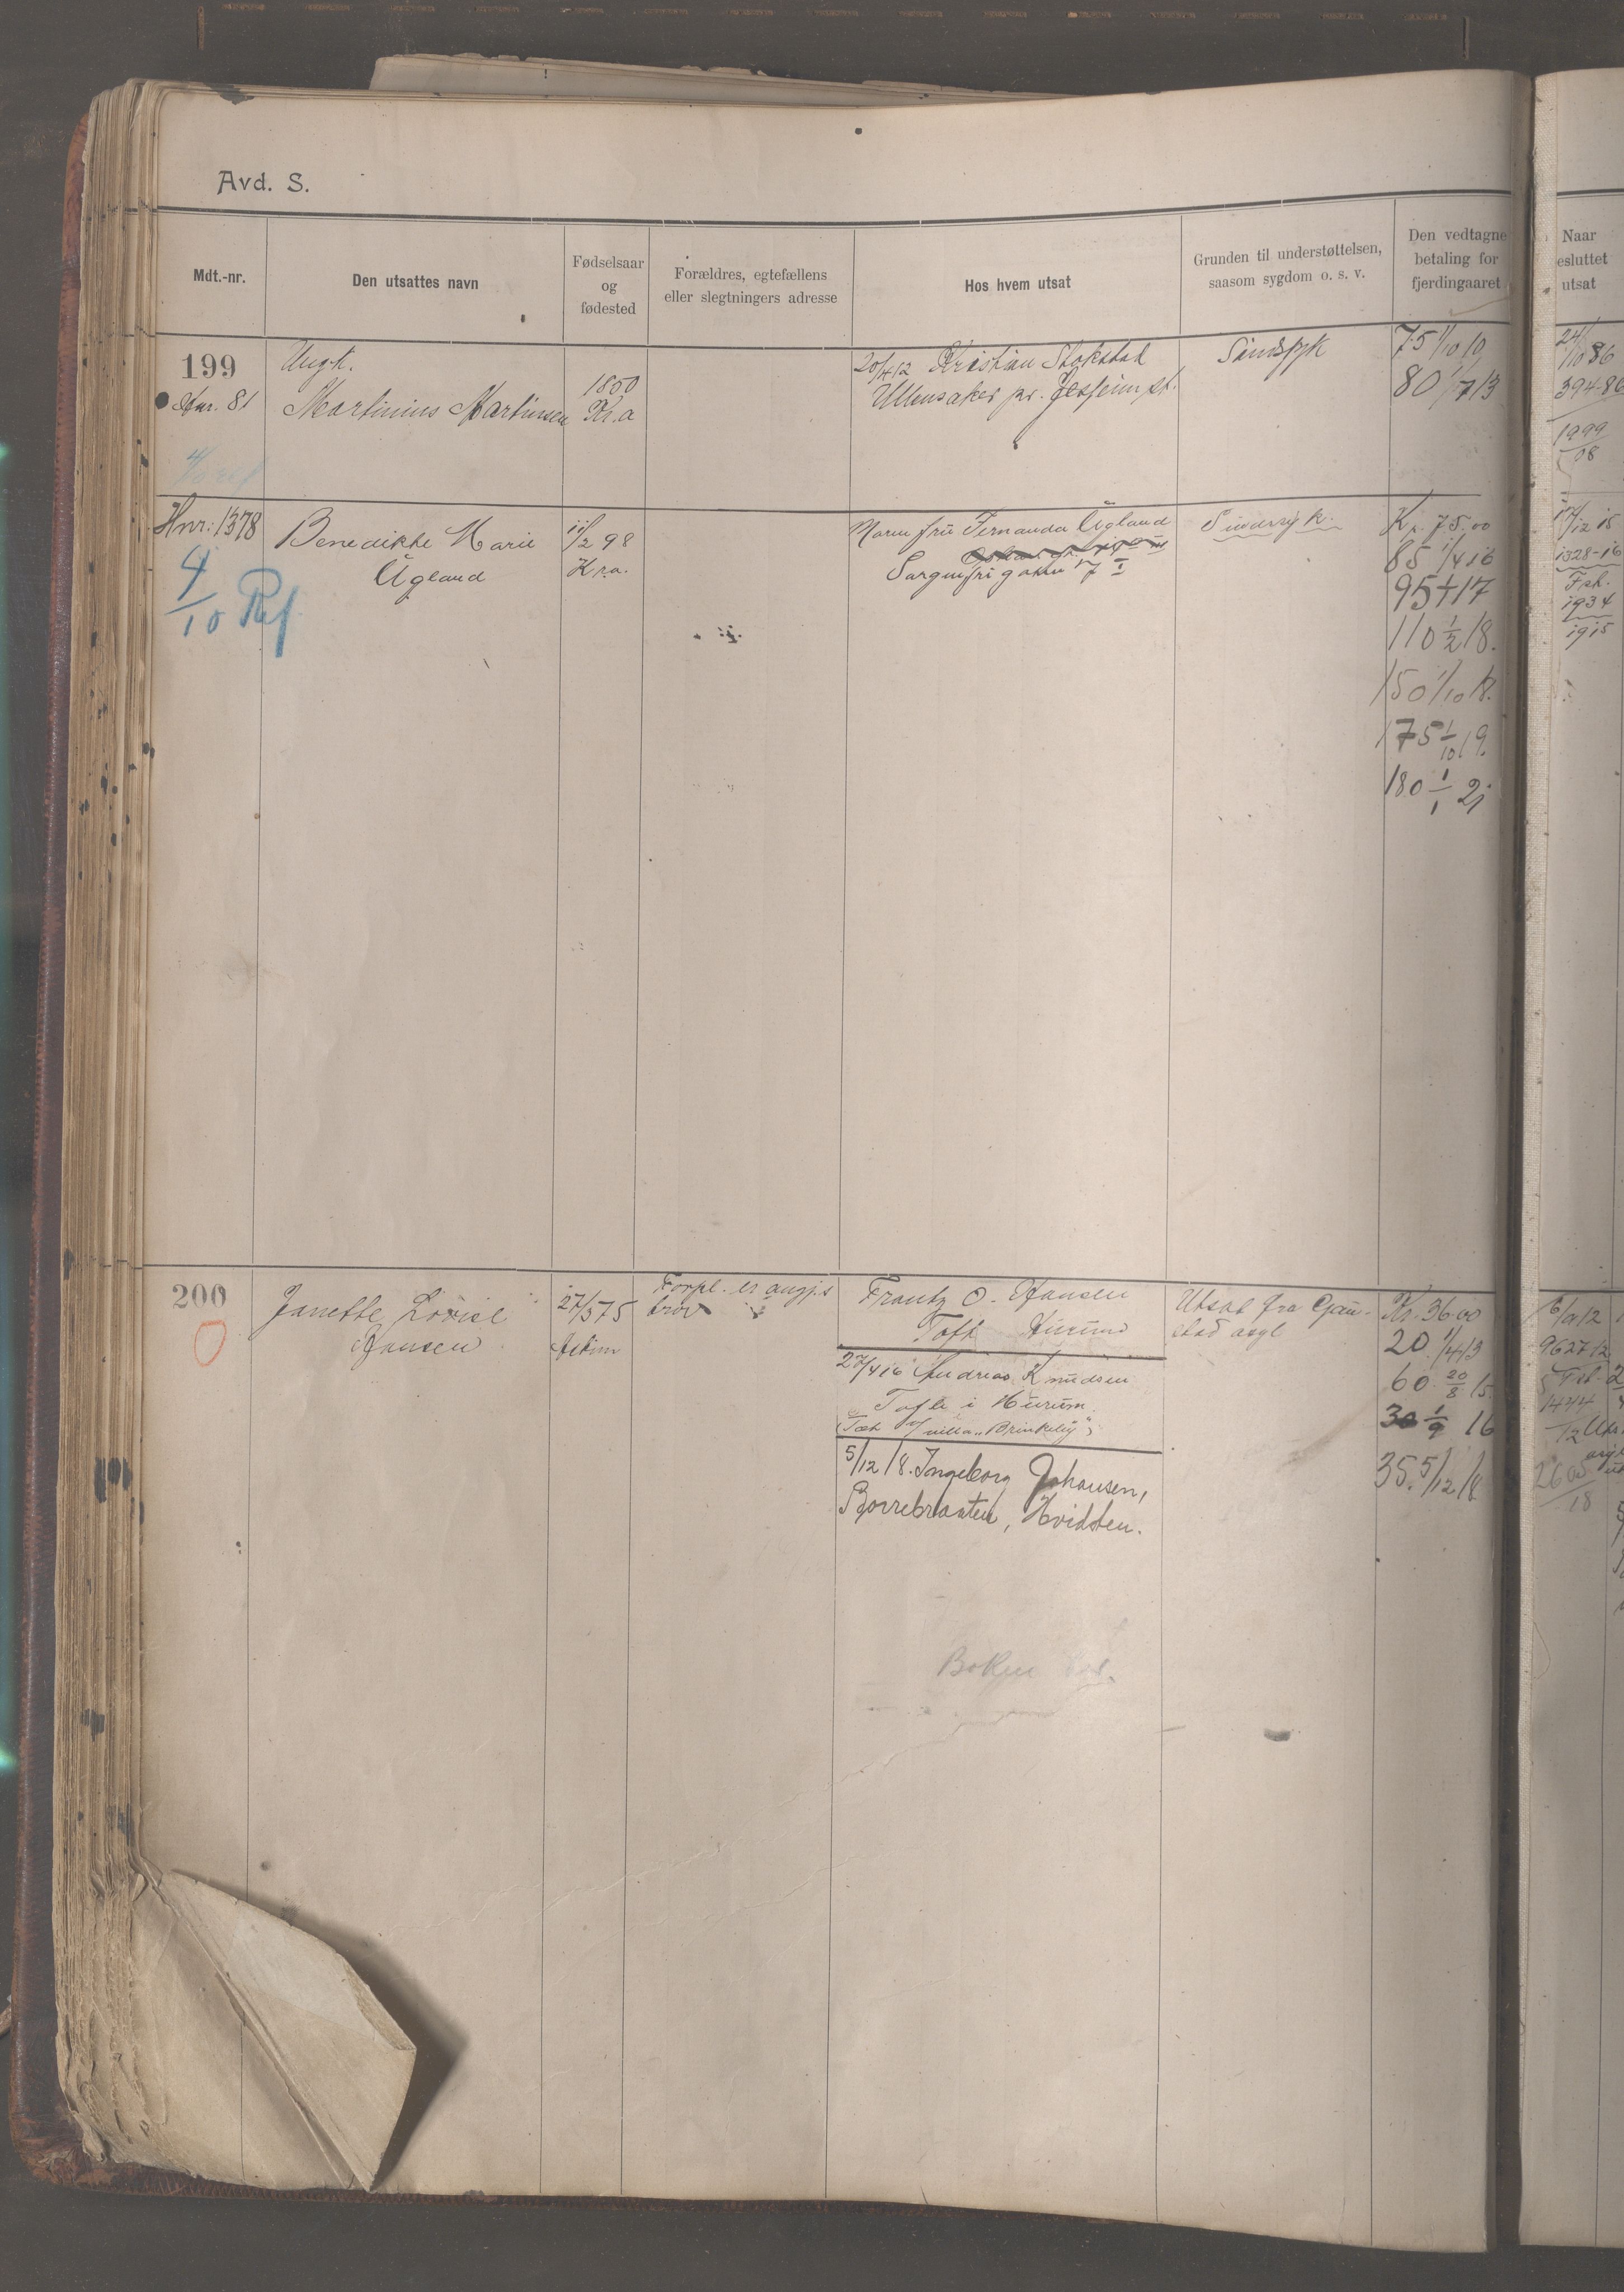 Avd. S.
Mdt.-nr.
Den utsattes navn
Fødselsaar
og
fødested
Forældres, egtefællens
eller slegtningers adresse
Hos hvem utsat
Grunden til understøttelsen,
saasom sygdom o. s. v.
Den vedtagne
betaling for
fjerdingaaret
Naar
esluttet
utsat
199
Hnr. 81
Ungk.
Martinius Martinsen
1850
Kr.a
20/4 12 Kristian Stokstad
Ullensaker pr. Jessheim st.
Sindssyk
75 1/10 10
80 1/7 13
24/
10 86
394-86
1999
08
Hnr: 1378
4/10 Ref
Benedikke Marie
Ugland
11/2 98
Kra.
Moren fru Fernanda Ugland
Sorgenfrigaten 7 I
Sindssyk.
Kr. 75.00
85 1/4 16
95 17
110 1/2 18.
150 1/10 18.
175 1/10 19.
180 1/1 21
/12 15
1328-16
Fsk.
1934
1915
200
Janette Lovise
Jansen
27/3 75
Askim
Forpl. er angj.s
bror
Frantz O. Hansen
Toft Hurum
27/4 16 Andreas Knudsen
Tofte i Hurum.
(Tæt v/ villa "Brinkely")
5/12 18. Ingeborg Johansen,
Borrebraaten, Hvidsten.
Utsat fra Gau-
stad asyl
Kr. 36.00
20 1/4 13
60 20/8 15
30 1/9 16
35. 5/12 18
6/9 12
9627 12
Fsk.
1444
12
2605
18
Boken